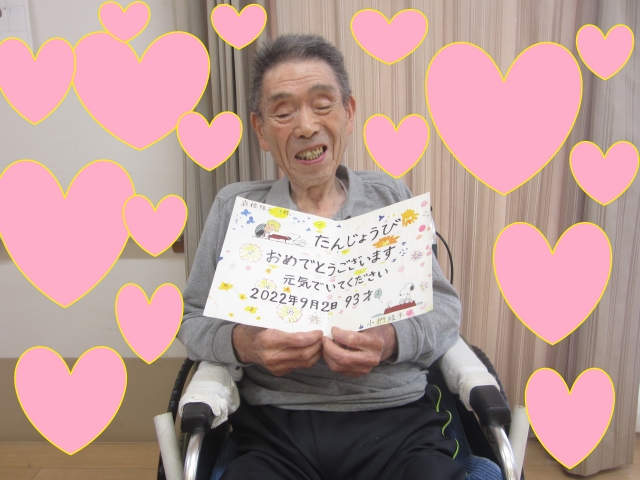 たんじょうび
おめでとうございます
元気でいてください
2022年9月2日 93才